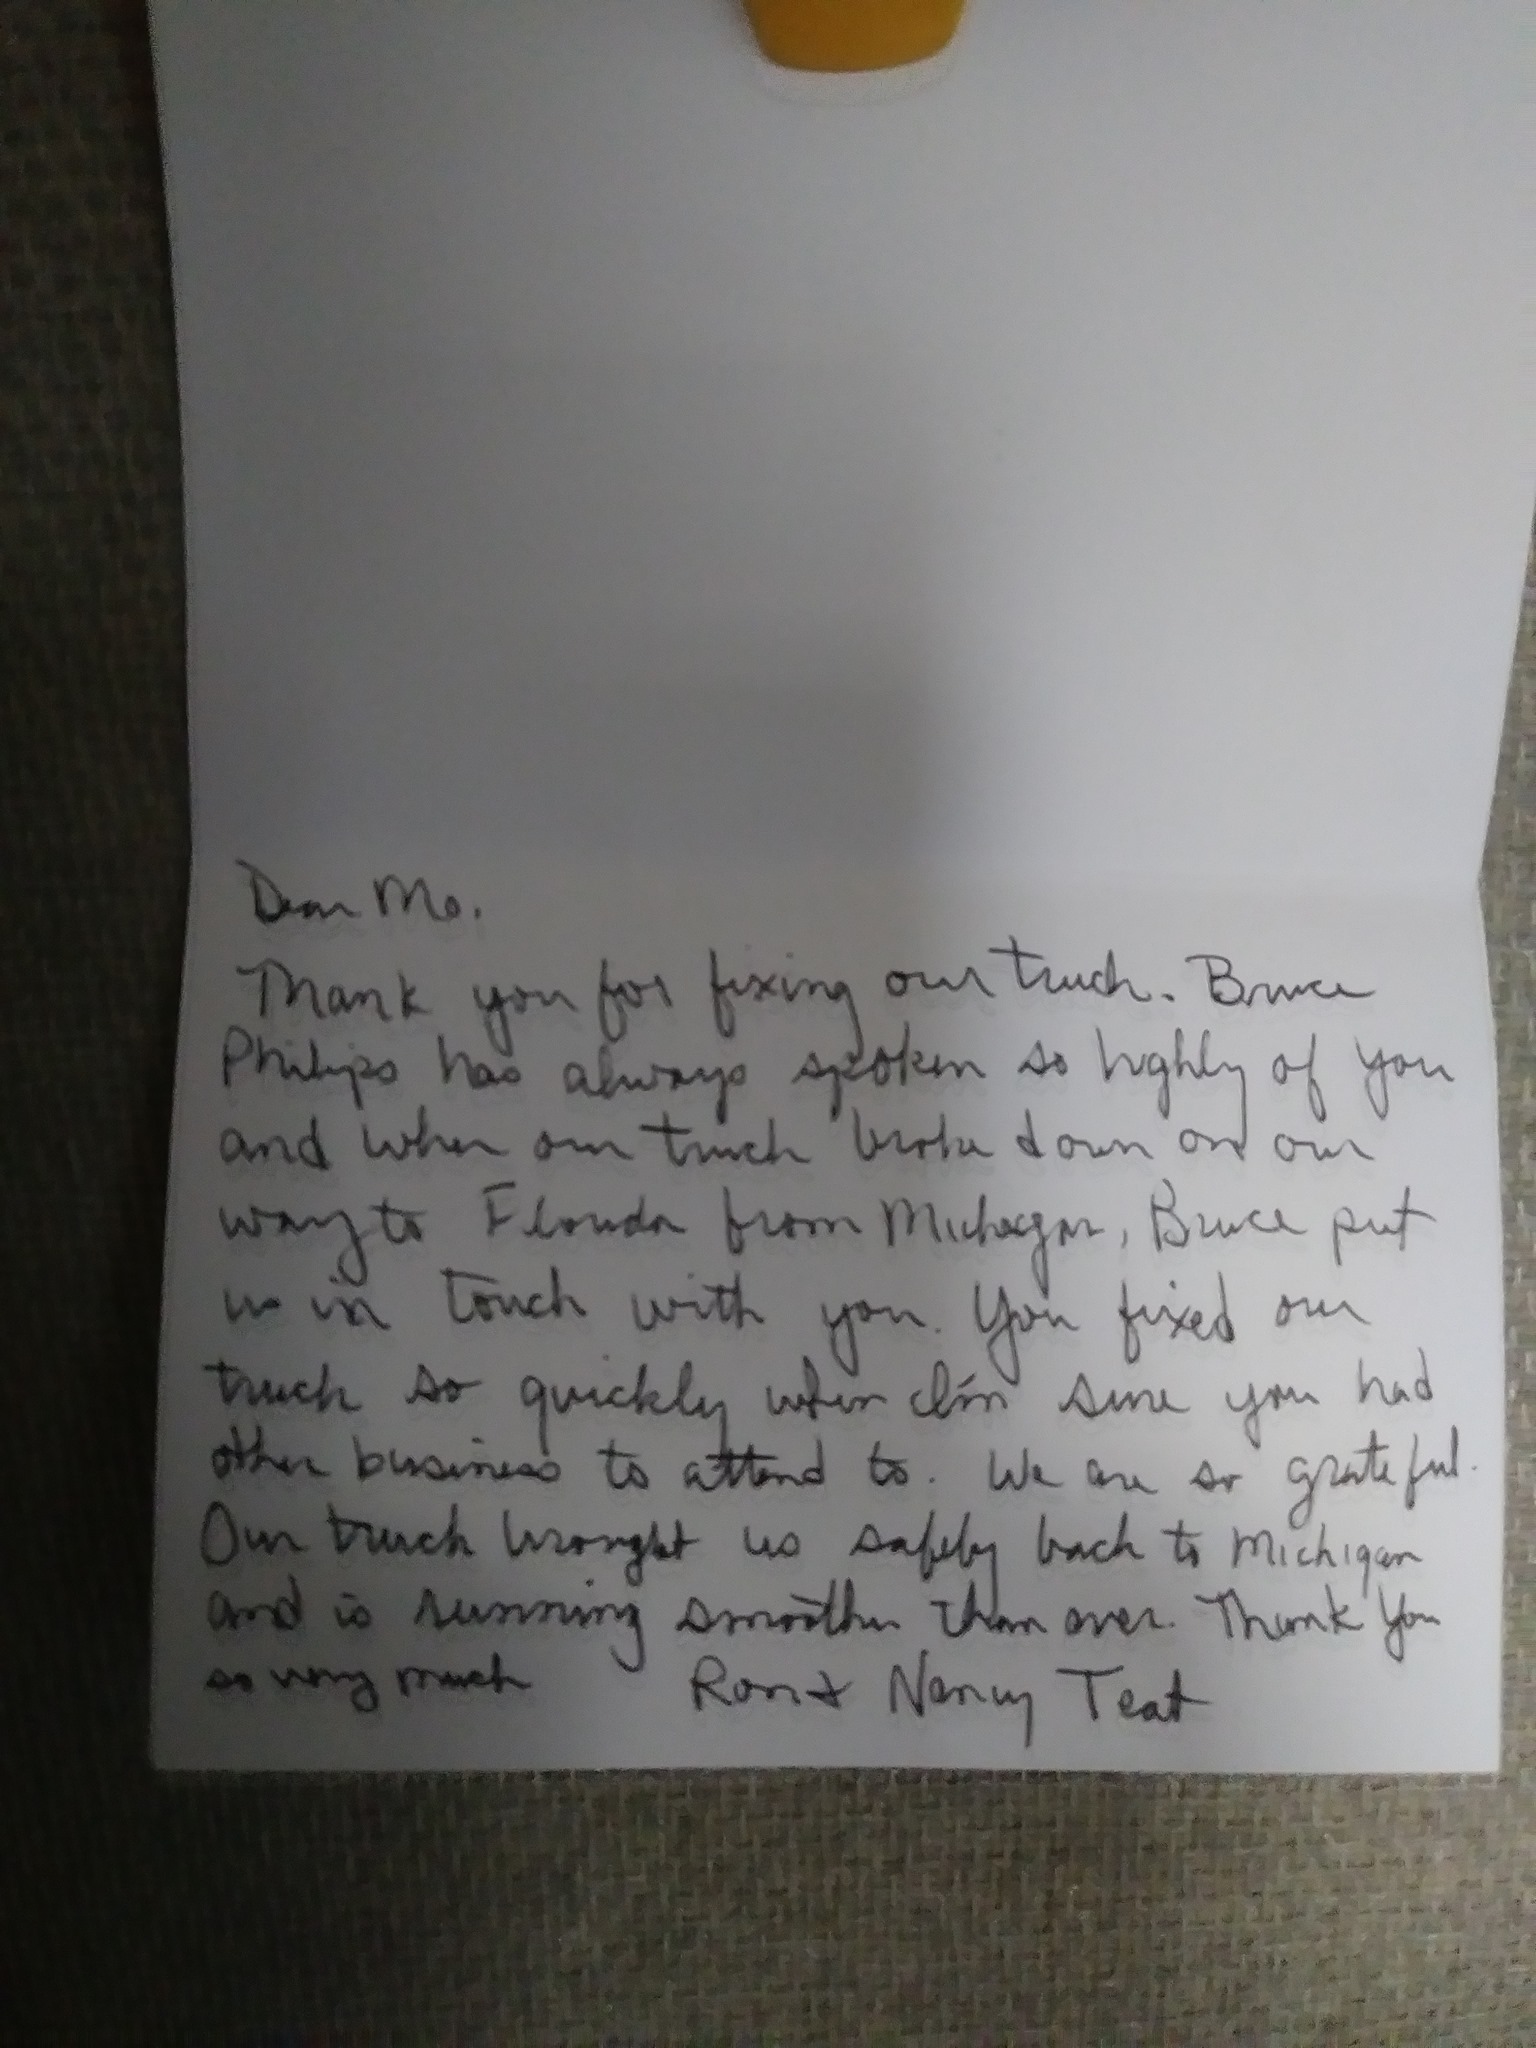 Dear Mo.
Thank you for fixing our truck. Bruce
Philips has always spoken so highly of you
and when our truck broke down on our
way to Florida from Michigan, Bruce put
us in touch with you. You fixed our
truck so quickly when I'm sure you had
other business to attend to. We are so grateful.
Our truck brought us safely back to Michigan
and is running smoother than ever. Thank You
so very much Ron & Nancy Teat